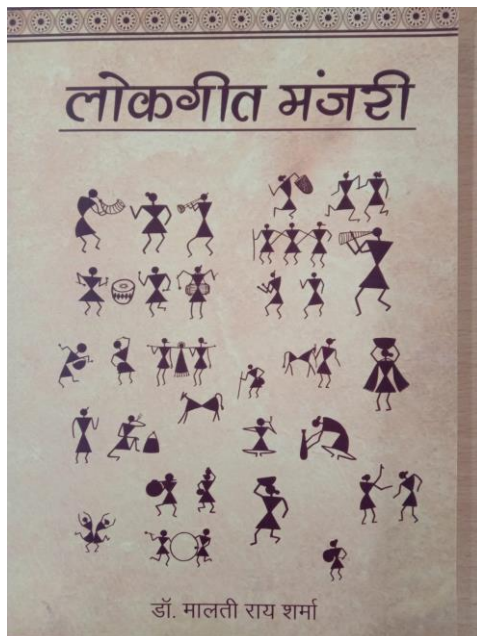 लोकगीत मंजरी
डॉ. मालती राय शर्मा